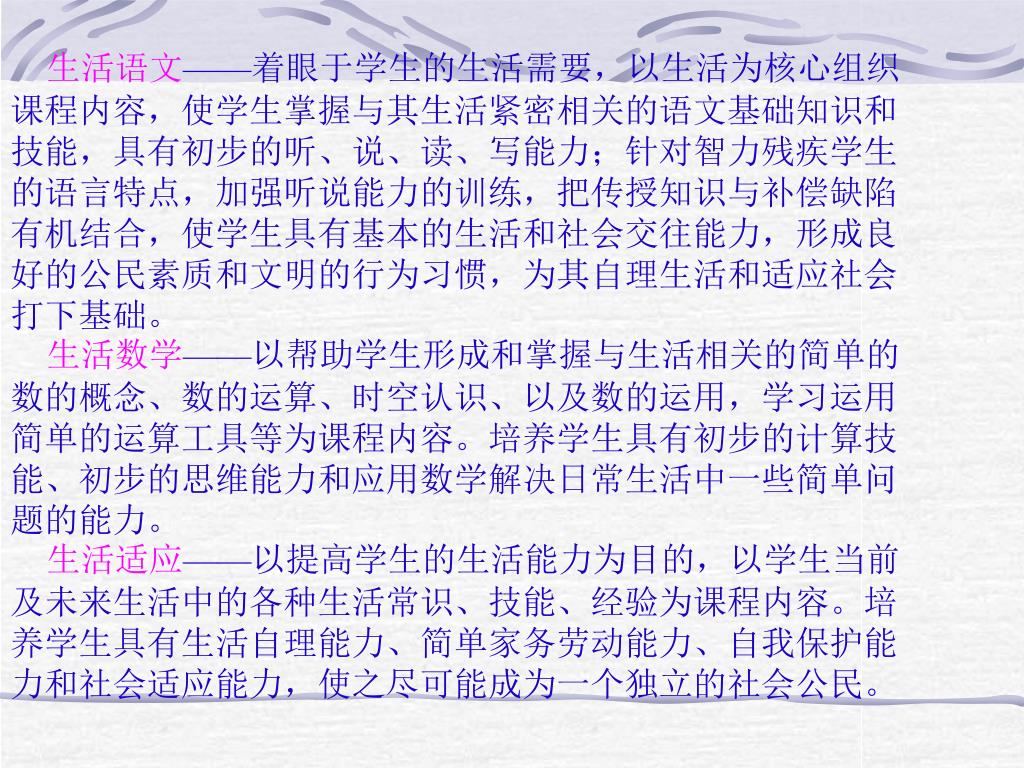 生活语文——着眼于学生的生活需要，以生活为核心组织
课程内容，使学生掌握与其生活紧密相关的语文基础知识和
技能，具有初步的听、说、读、写能力；针对智力残疾学生
的语言特点，加强听说能力的训练，把传授知识与补偿缺陷
有机结合，使学生具有基本的生活和社会交往能力，形成良
好的公民素质和文明的行为习惯，为其自理生活和适应社会
打下基础。
生活数学——以帮助学生形成和掌握与生活相关的简单的
数的概念、数的运算、时空认识、以及数的运用，学习运用
简单的运算工具等为课程内容。培养学生具有初步的计算技
能、初步的思维能力和应用数学解决日常生活中一些简单问
题的能力。
生活适应——以提高学生的生活能力为目的，以学生当前
及未来生活中的各种生活常识、技能、经验为课程内容。培
养学生具有生活自理能力、简单家务劳动能力、自我保护能
力和社会适应能力，使之尽可能成为一个独立的社会公民。